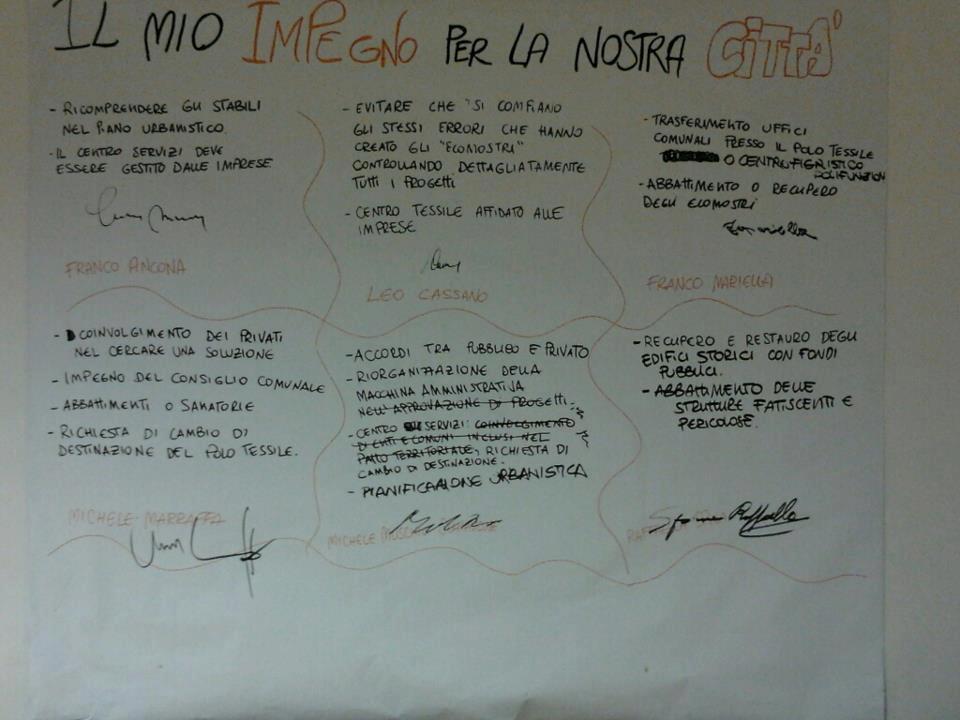 IL MIO IMPEGNO PER LA NOSTRA CITTA'
- RICOMPRENDERE GLI STABILI
NEL PIANO URBANISTICO.
- IL CENTRO SERVIZI DEVE
ESSERE GESTITO DALLE IMPRESE
FRANCO ANCONA
- EVITARE CHE "SI COMPIANO
GLI STESSI ERRORI CHE HANNO
CREATO GLI "ECOMOSTRI"
CONTROLLANDO DETTAGLIATAMENTE
TUTTI I PROGETTI
- CENTRO TESSILE AFFIDATO ALLE
IMPRESE
LEO CASSANO
- TRASFERIMENTO UFFICI
COMUNALI PRESSO IL POLO TESSILE
O CENTRO FIERISTICO
POLIFUNZION
- ABBATTIMENTO O RECUPERO
DEGLI ECOMOSTRI
FRANCO MARIELLA
- COINVOLGIMENTO DEI PRIVATI
NEL CERCARE UNA SOLUZIONE
- IMPEGNO DEL CONSIGLIO COMUNALE
- ABBATTIMENTI O SANATORIE
- RICHIESTA DI CAMBIO DI
DESTINAZIONE DEL POLO TESSILE.
MICHELE MARRAFFA
- ACCORDI TRA PUBBLICO E PRIVATO
- RIORGANIZZAZIONE DELLA
MACCHINA AMMINISTRATIVA
NELL'APPROVAZIONE DI PROGETTI.
- CENTRO SERVIZI: COINVOLGIMENTO
DI ENTI E COMUNI INCLUSI NEL
PATTO TERRITORIALE, RICHIESTA DI
CAMBIO DI DESTINAZIONE.
- PIANIFICAZIONE URBANISTICA
MICHELE
- RECUPERO E RESTAURO DEGLI
EDIFICI STORICI CON FONDI
PUBBLICI.
- ABBATTIMENTO DELLE
STRUTTURE FATISCENTI E
PERICOLOSE.